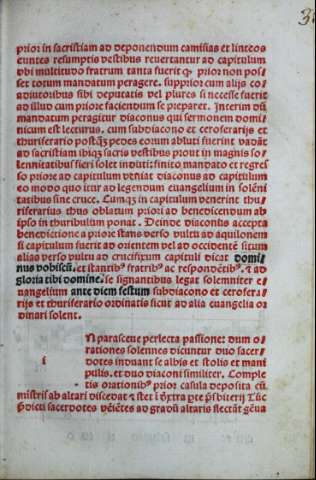 3
prior in sacristiam ad deponendum camisias et linteos
euntes resumptis vestibus revertantur ad capitulum
vbi multitudo fratrum tanta fuerit ꝙ prior non pos
set totum mandatum peragere. supprior cum alijs co
adiutoribus sibi deputatis vel plures si necesse fuerit
ad illud cum priore faciendum se preparet. Interim dũ
mandatum peragitur diaconus qui sermonem domi
nicum est lecturus. cum subdiacono et ceroferarijs et
thuriferario postꝗ̃ pedes eorum abluti fuerint vadãt
ad sacristiam ibiqꝫ sacris vestibus prout in magnis so
lennitatibus fieri solet induti: finito mandato et regres
so priore ad capitulum veniat diaconus ad capitulum
eo modo quo itur ad legendum euangelium in solẽni
tatibus sine cruce. Cumqꝫ in capitulum venerint thu
riferarius thus oblatum priori ad benedicendum ab
ipso in thuribulum ponat. Deinde diaconus accepta
benedictione a priore stans verso vultu ad aquilonem
si capitulum fuerit ad orientem vel ad occidentẽ situm
alias verso vultu ad crucifixum capituli dicat domi
nus vobiscũ. et stantibꝰ fratribꝰ ac respondẽtibꝰ. ⁊ ad
gloria tibi domine. se signantibus legat solemniter e
uangelium ante diem festum subdiacono et cerofera
rijs et thuriferario ordinatis sicut ad alia euangelia or
dinari solent.
N parasceue perlecta passione: dum o
rationes solennes dicuntur duo sacer
i
dotes induant se albis et stolis et mani
pulis. et duo diaconi similiter. Comple
tis orationibꝰ prior casula deposita cũ
mistris ab altari discedat ⁊ stet
p̃dicti sacerdotes veniẽtes ad gradũ altaris flectãt genua